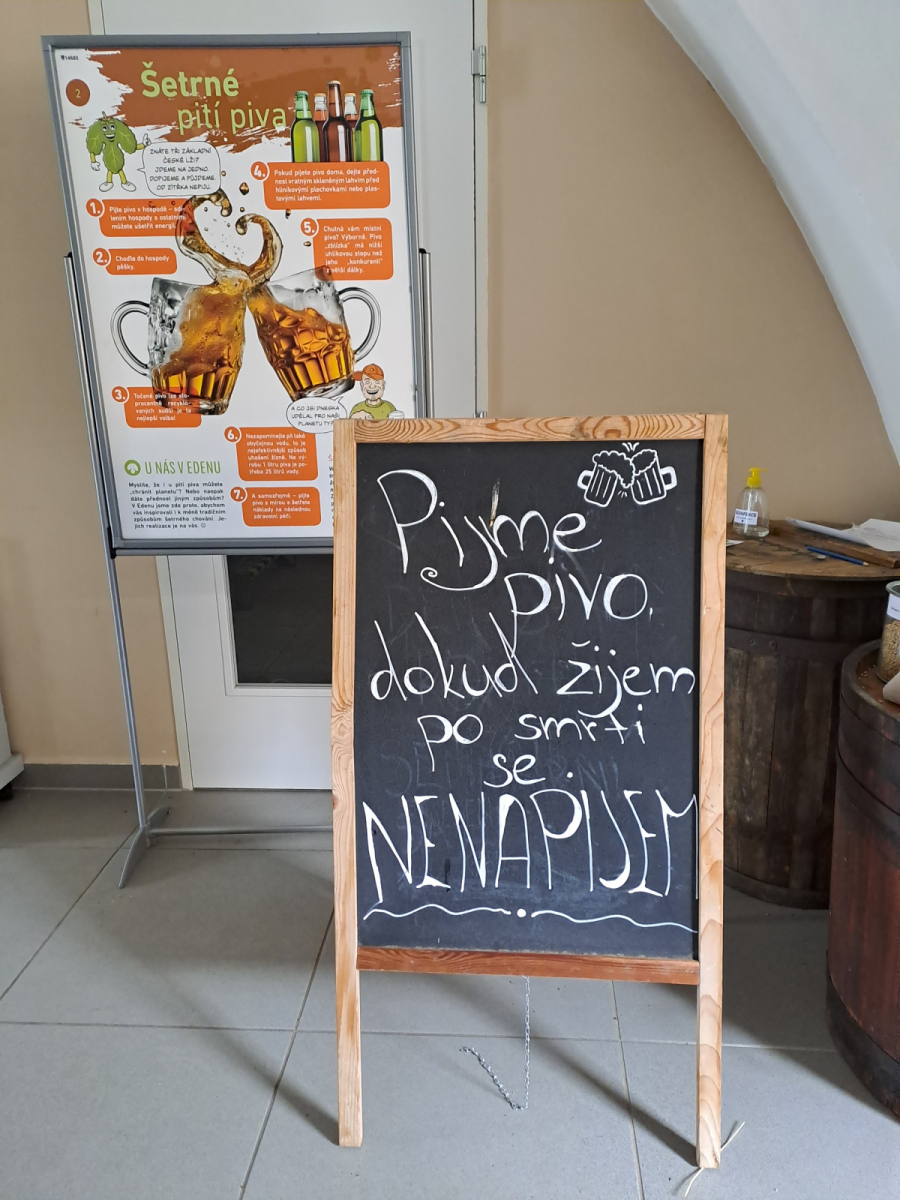 2
Šetrné
pití piva
ZNÁTE TŘI ZÁKLADNÍ
ČESKÉ LŽI?
JDEME NA JEDNO.
DOPIJEME A PŮJDEME.
OD ZÍTŘKA NEPIJU.
1. Pijte pivo v hospodě – sdí-
lením hospody s ostatními
můžete ušetřit energii.
2. Choďte do hospody
pěšky.
3. Točené pivo ze sto-
procentně recyklo-
vaných sudů je ta
nejlepší volba!
4. Pokud pijete pivo doma, dejte před-
nost vratným skleněným lahvím před
hliníkovými plechovkami nebo plas-
tovými lahvemi.
5. Chutná vám místní
pivo? Výborně. Pivo
„zblízka“ má nižší
uhlíkovou stopu než
jeho „konkurent“
z větší dálky.
A CO JSI DNESKA
UDĚLAL PRO NAŠI
PLANETU TY?
6. Nezapomínejte pít také
obyčejnou vodu, to je
nejefektivnější způsob
uhašení žízně. Na vý-
robu 1 litru piva je po-
třeba 25 litrů vody.
7. A samozřejmě – pijte
pivo s mírou a šetřete
náklady na následnou
zdravotní péči.
U NÁS V EDENU
Myslíte, že i u pití piva můžete
„chránit planetu“? Nebo naopak
dáte přednost jiným způsobům?
V Edenu jsme zde proto, abychom
vás inspirovali i k méně tradičním
způsobům šetrného chování. Je-
jich realizace je na vás. ☺
Pijme
pivo,
dokud žijem
po smrti
se
NENAPIJEM